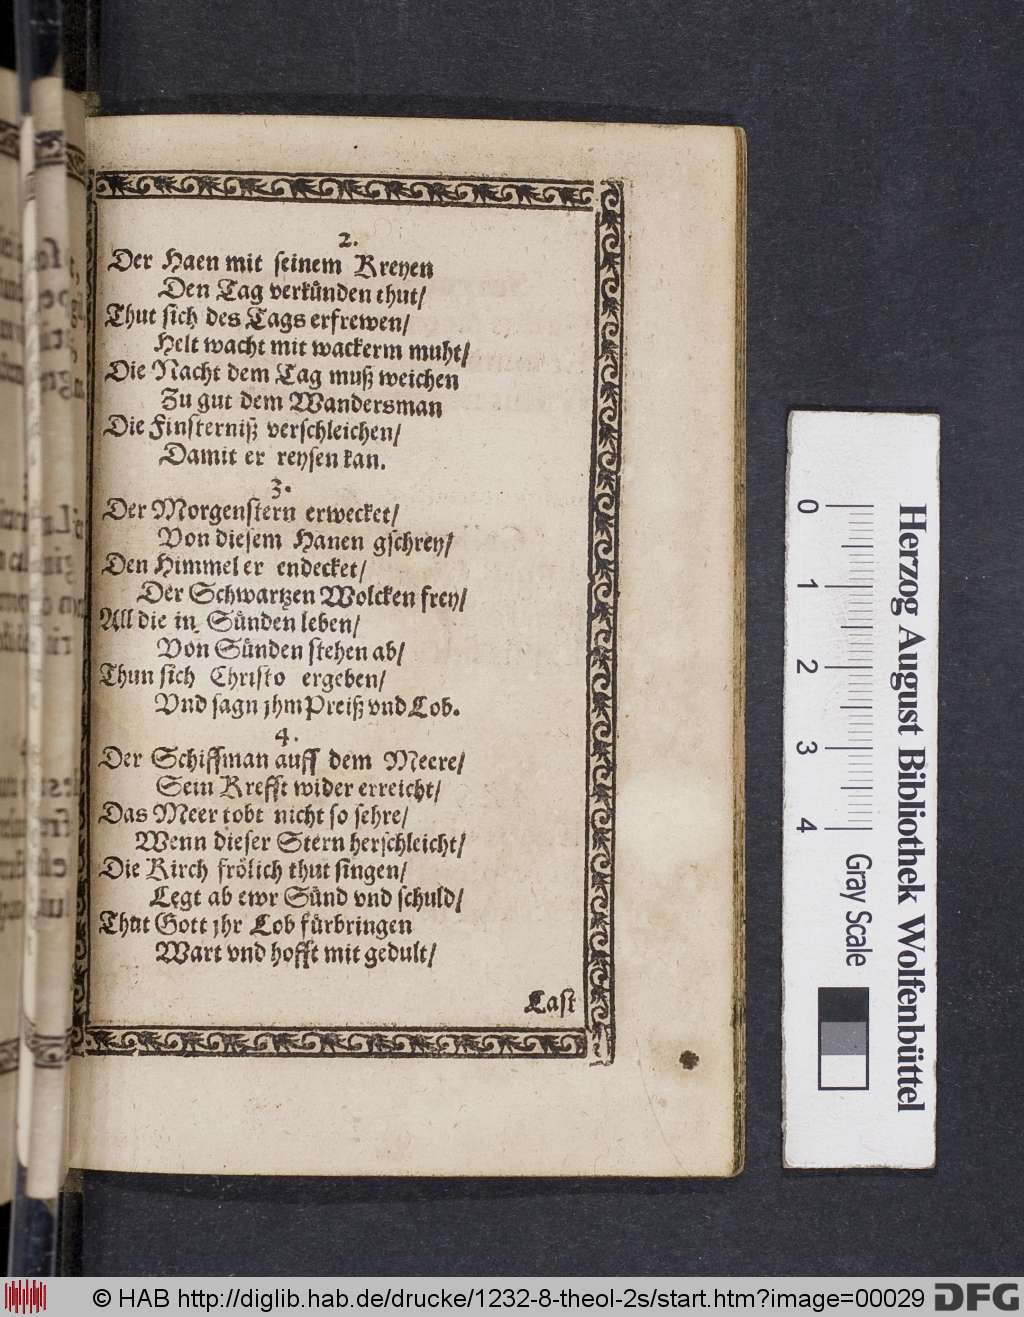 2.
Der Haen mit seinem Kreyen
Den Tag verkünden thut/
Thut sich des Tags erfrewen/
Helt wacht mit wackerm muht/
Die Nacht dem Tag muß weichen
Zu gut dem Wandersman
Die Finsterniß verschleichen/
Damit er reysen kan.
3.
Der Morgenstern erwecket/
Von diesem Hanen gschrey/
Den Himmel er endecket/
Der Schwartzen Wolcken frey/
All die in Sünden leben/
Von Sünden stehen ab/
Thun sich Christo ergeben/
Vnd sagn jhm Preiß vnd Lob.
4.
Der Schiffman auff dem Meere/
Sein Krefft wider erreicht/
Das Meer tobt nicht so sehre/
Wenn dieser Stern herschleicht/
Die Kirch frölich thut singen/
Legt ab ewr Sünd vnd schuld/
Thut Gott jhr Lob fürbringen
Wart vnd hofft mit gedult/
Last
Herzog August Bibliothek Wolfenbüttel
0 1 2 3 4 Gray Scale
© HAB http://diglib.hab.de/drucke/1232-8-theol-2s/start.htm?image=00029 DFG